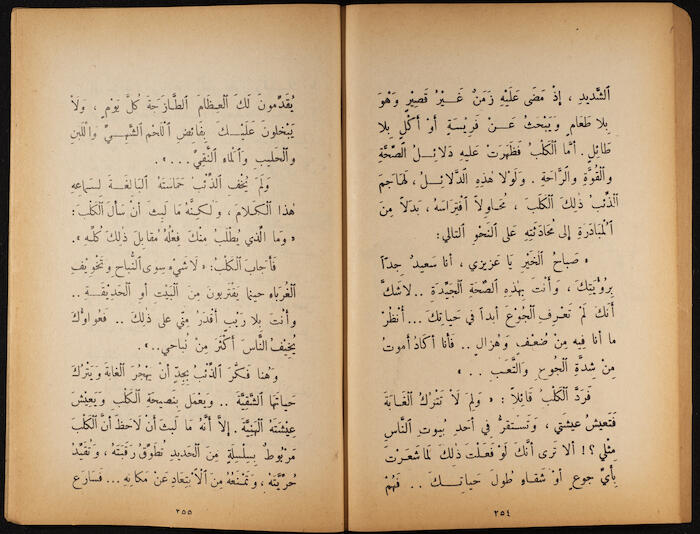 الشَّديدِ ، إذْ مَضَى عَلَيْهِ زَمَنٌ غَيْرُ قَصِيرٍ وَهْوَ
بِلا طَعَامٍ وَيَبْحَثُ عَنْ فَرِيسَةٍ أوْ أكْلٍ بِلا
طَائِلٍ . أمَّا الكَلْبُ فَظَهَرَتْ عليه دَلائِلُ الصِّحَّةِ
وَالْقُوَّةِ وَالرَّاحَةِ . وَلَوْلا هٰذِهِ الدَّلائِلُ ، لَهَاجَمَ
الذِّئْبُ ذلِكَ الكَلْبَ ، مُحَاوِلاً افْتِرَاسَهُ ، بَدَلاً مِنَ
الْمُبَادَرَةِ إلى مُحَادَثَتِهِ عَلَى النَّحْوِ التالي:
« صَبَاحُ الْخَيْرِ يَا عَزِيزي ، أنا سَعِيدٌ جِداً
بِرُؤْيَتِكَ ، وَأنْتَ بِهٰذِهِ الصِّحَّةِ الْجَيِّدَةِ .. لاشَكَّ
أنَّكَ لَمْ تَعْرِفِ الْجُوعَ أبداً في حَيَاتِكَ... أُنْظُرْ
ما أنا فيه مِنْ ضُعْفٍ وَهُزالٍ .. فأنا أكَادُ أموتُ
مِن شدَّةِ الْجُوعِ وَالتَّعَبِ .. »
فَرَدَّ الْكَلْبُ قائلاً : « وَلِمَ لَا تَتْرُكُ الْغَابَةَ
فَتَعيشُ عيشَتِي ، وَتَستَقرُّ في أحدِ بيوتِ النَّاسِ
مِثْلي ؟! ألا تَرى أنَّكَ لَوْ فَعَلْتَ ذٰلِكَ لَمَا شَعَرْتَ
بِأَيِّ جوعٍ أوْ شقاءٍ طُولَ حَيَاتِكَ .. فَهُمْ
٢٥٤
يُقَدِّمونَ لَكَ الْعِظَامَ الطَّازَجَةَ كُلَّ يَوْمٍ ، وَلَا
يَبْخَلونَ عَلَيْكَ بِفَائِضِ اللَّحْمِ الشَّهِيِّ وَاللَّبَنِ
وَالْحَليبِ وَالْماءِ النَّقِيِّ ... ».
وَلَمْ يُخْفِ الذِّئْبُ حَماسَتَهُ الْبَالِغَةَ لِسَمَاعِهِ
هٰذا الْكَلَامَ ، وَلكِنَّهُ مَا لَبِثَ أنْ سَألَ الْكَلْبَ:
« وَمَا الَّذي يُطْلَبُ مِنْكَ فِعْلُهُ مُقابِلَ ذٰلِكَ كُلِّهِ ».
فَأَجابَ الْكَلْبُ: « لاشَيْءَ سِوى النُّباحِ وَتَخْويفِ
الْغُرَباءِ حينما يَقْتَربونَ مِنَ الْبَيْتِ أو الْحَديقَةِ ..
وأنْتَ بِلا رَيْبٍ أقْدَرُ مِنِّي على ذلِكَ .. فَعُواؤُكَ
يُخيْفُ النَّاسَ أكْثَرَ مِنْ نُباحي.. ».
وَهُنا فَكَّرَ الذِّئْبُ بِجِدٍّ أنْ يهْجُرَ الْغابَةَ وَيَتْرُكَ
حَياتَها الشَّقِيَّةَ .. وَيعْمَلَ بِنَصيحَةِ الْكَلْبِ وَيَعِيْشَ
عِيْشَتَهُ الْهَنِيَّةَ . إلاَّ أنَّهُ مَا لَبِثَ أنْ لَاحَظَ أنَّ الْكَلْبَ
مَرْبُوطٌ بِسِلْسِلَةٍ مِنَ الْحَديدِ تُطَوِّقُ رَقَبَتَهُ ، وَتُقَيِّدُ
حُرِّيَّتَهُ ، وَتَمْنَعُهُ مِنَ الْابْتِعَادِ عَنْ مَكَانِهِ ... فَسَارَعَ
٢٥٥